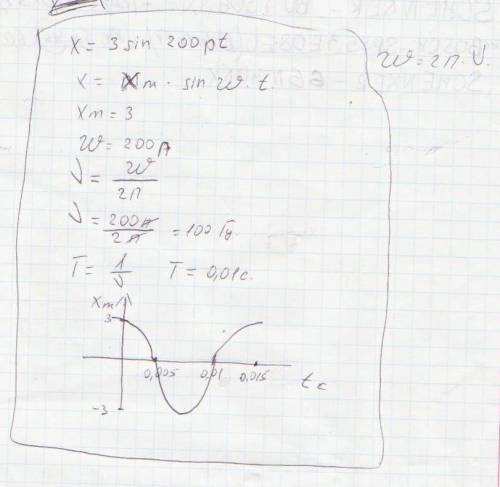 x = 3 sin 200pt
ω = 2π · ν.
x = Xm · sin ω · t
Xm = 3
ω = 200π
ν = ω / 2π
ν = 200π / 2π = 100 Гц
T = 1 / ν T = 0,01 с.
Xm
3
0,005 0,01 0,015
t c
-3